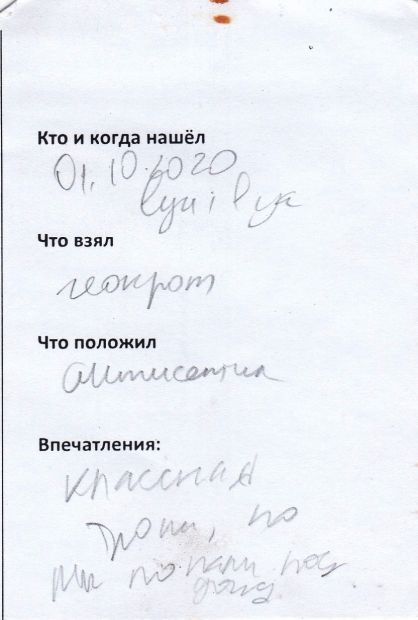 Кто и когда нашёл
01.10.2020
Что взял
геокрот
Что положил
Антисептик
Впечатления:
Классная
тропа, но
мы попали под
дождь